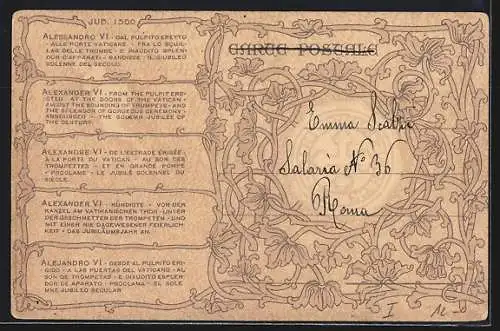 JUB. 1500
ALESSANDRO VI - DAL PULPITO ERETTO
- ALLE PORTE VATICANE - FRA LO SQUIL-
LAR DELLE TROMBE - E INAUDITO SPLEN-
DOR D'APPARATI - BANDISCE - IL GIUBILEO
SOLENNE DEL SECOLO.
ALEXANDER VI - FROM THE PULPIT ERE-
CTED - AT THE DOORS OF THE VATICAN -
AMIDST THE SOUNDING OF TRUMPETS - AND
THE SPLENDOR OF GORGEOUS DRAPERIES -
ANNOUNCED - THE SOLEMN JUBILEE OF
THE CENTURY.
ALEXANDRE VI - DE L'ESTRADE ÉRIGÉE -
À LA PORTE DU VATICAN - AU SON DES
TROMPETTES - ET EN GRANDE POMPE
- PROCLAME - LE JUBILÉ SOLENNEL DU
SIÈCLE.
ALEXANDER VI - KÜNDIGTE - VOR DER
KANZEL AM VATIKANISCHEN THOR - UNTER
DER GESCHMETTER DER TROMPETEN - UND
MIT EINER NIE DAGEWESENER FEIERLICH-
KEIT - DAS JUBILÄUMSJAHR AN.
ALEJANDRO VI - DESDE AL PULPITO ERI-
GIDO - A LAS PUERTAS DEL VATICANO - AL
SON DE TROMPETAS - E INAUDITO ESPLEN-
DOR DE APARATO - PROCLAMA - EL SOLE-
MNE JUBILEO SECULAR.
CARTE POSTALE
Emma
Salaria No 36
Roma
I